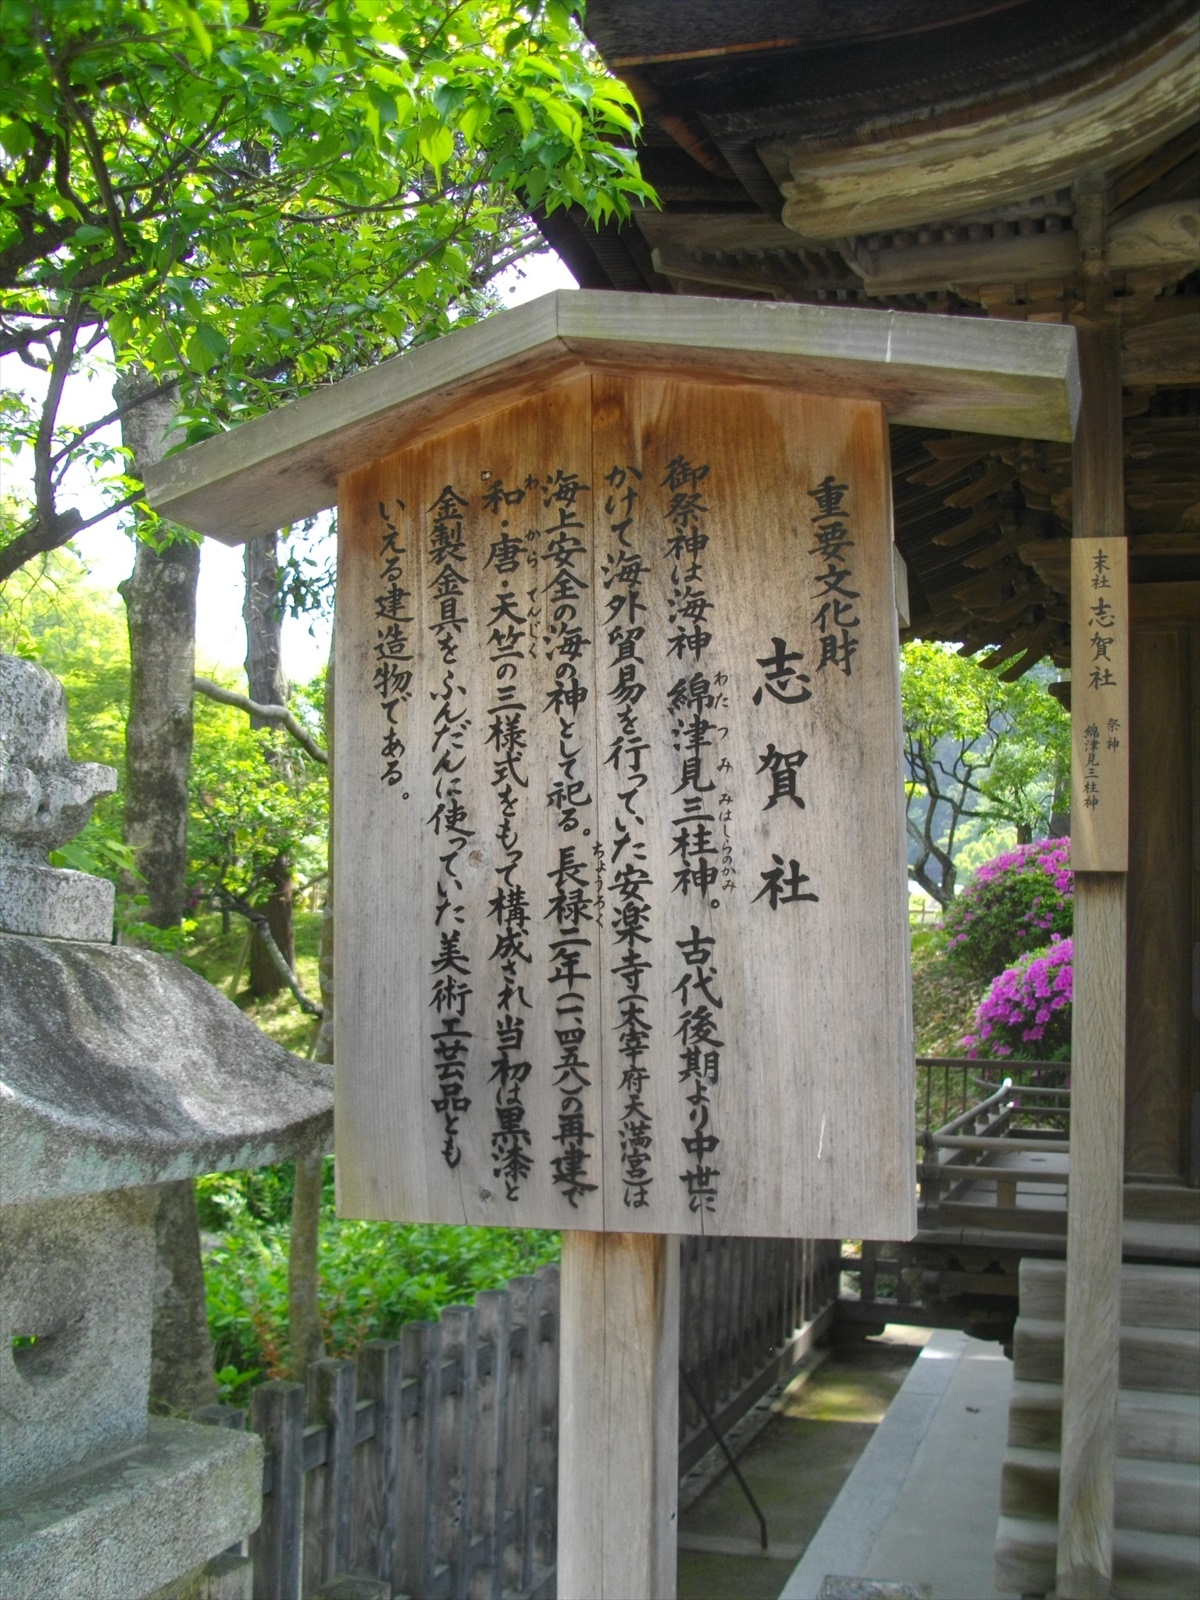 重要文化財
志賀社
御祭神は海神 綿津見三柱神。古代後期より中世に
わたつみ みはしらのかみ
かけて海外貿易を行っていた安楽寺(太宰府天満宮)は
海上安全の海の神として祀る。長禄二年(一、四五八)の再建で
ちょうろく
和・唐・天竺の三様式をもって構成され当初は黒漆と
わ から てんじく
金製金具をふんだんに使っていた美術工芸品とも
いえる建造物である。
末社 志賀社
祭神
綿津見三柱神